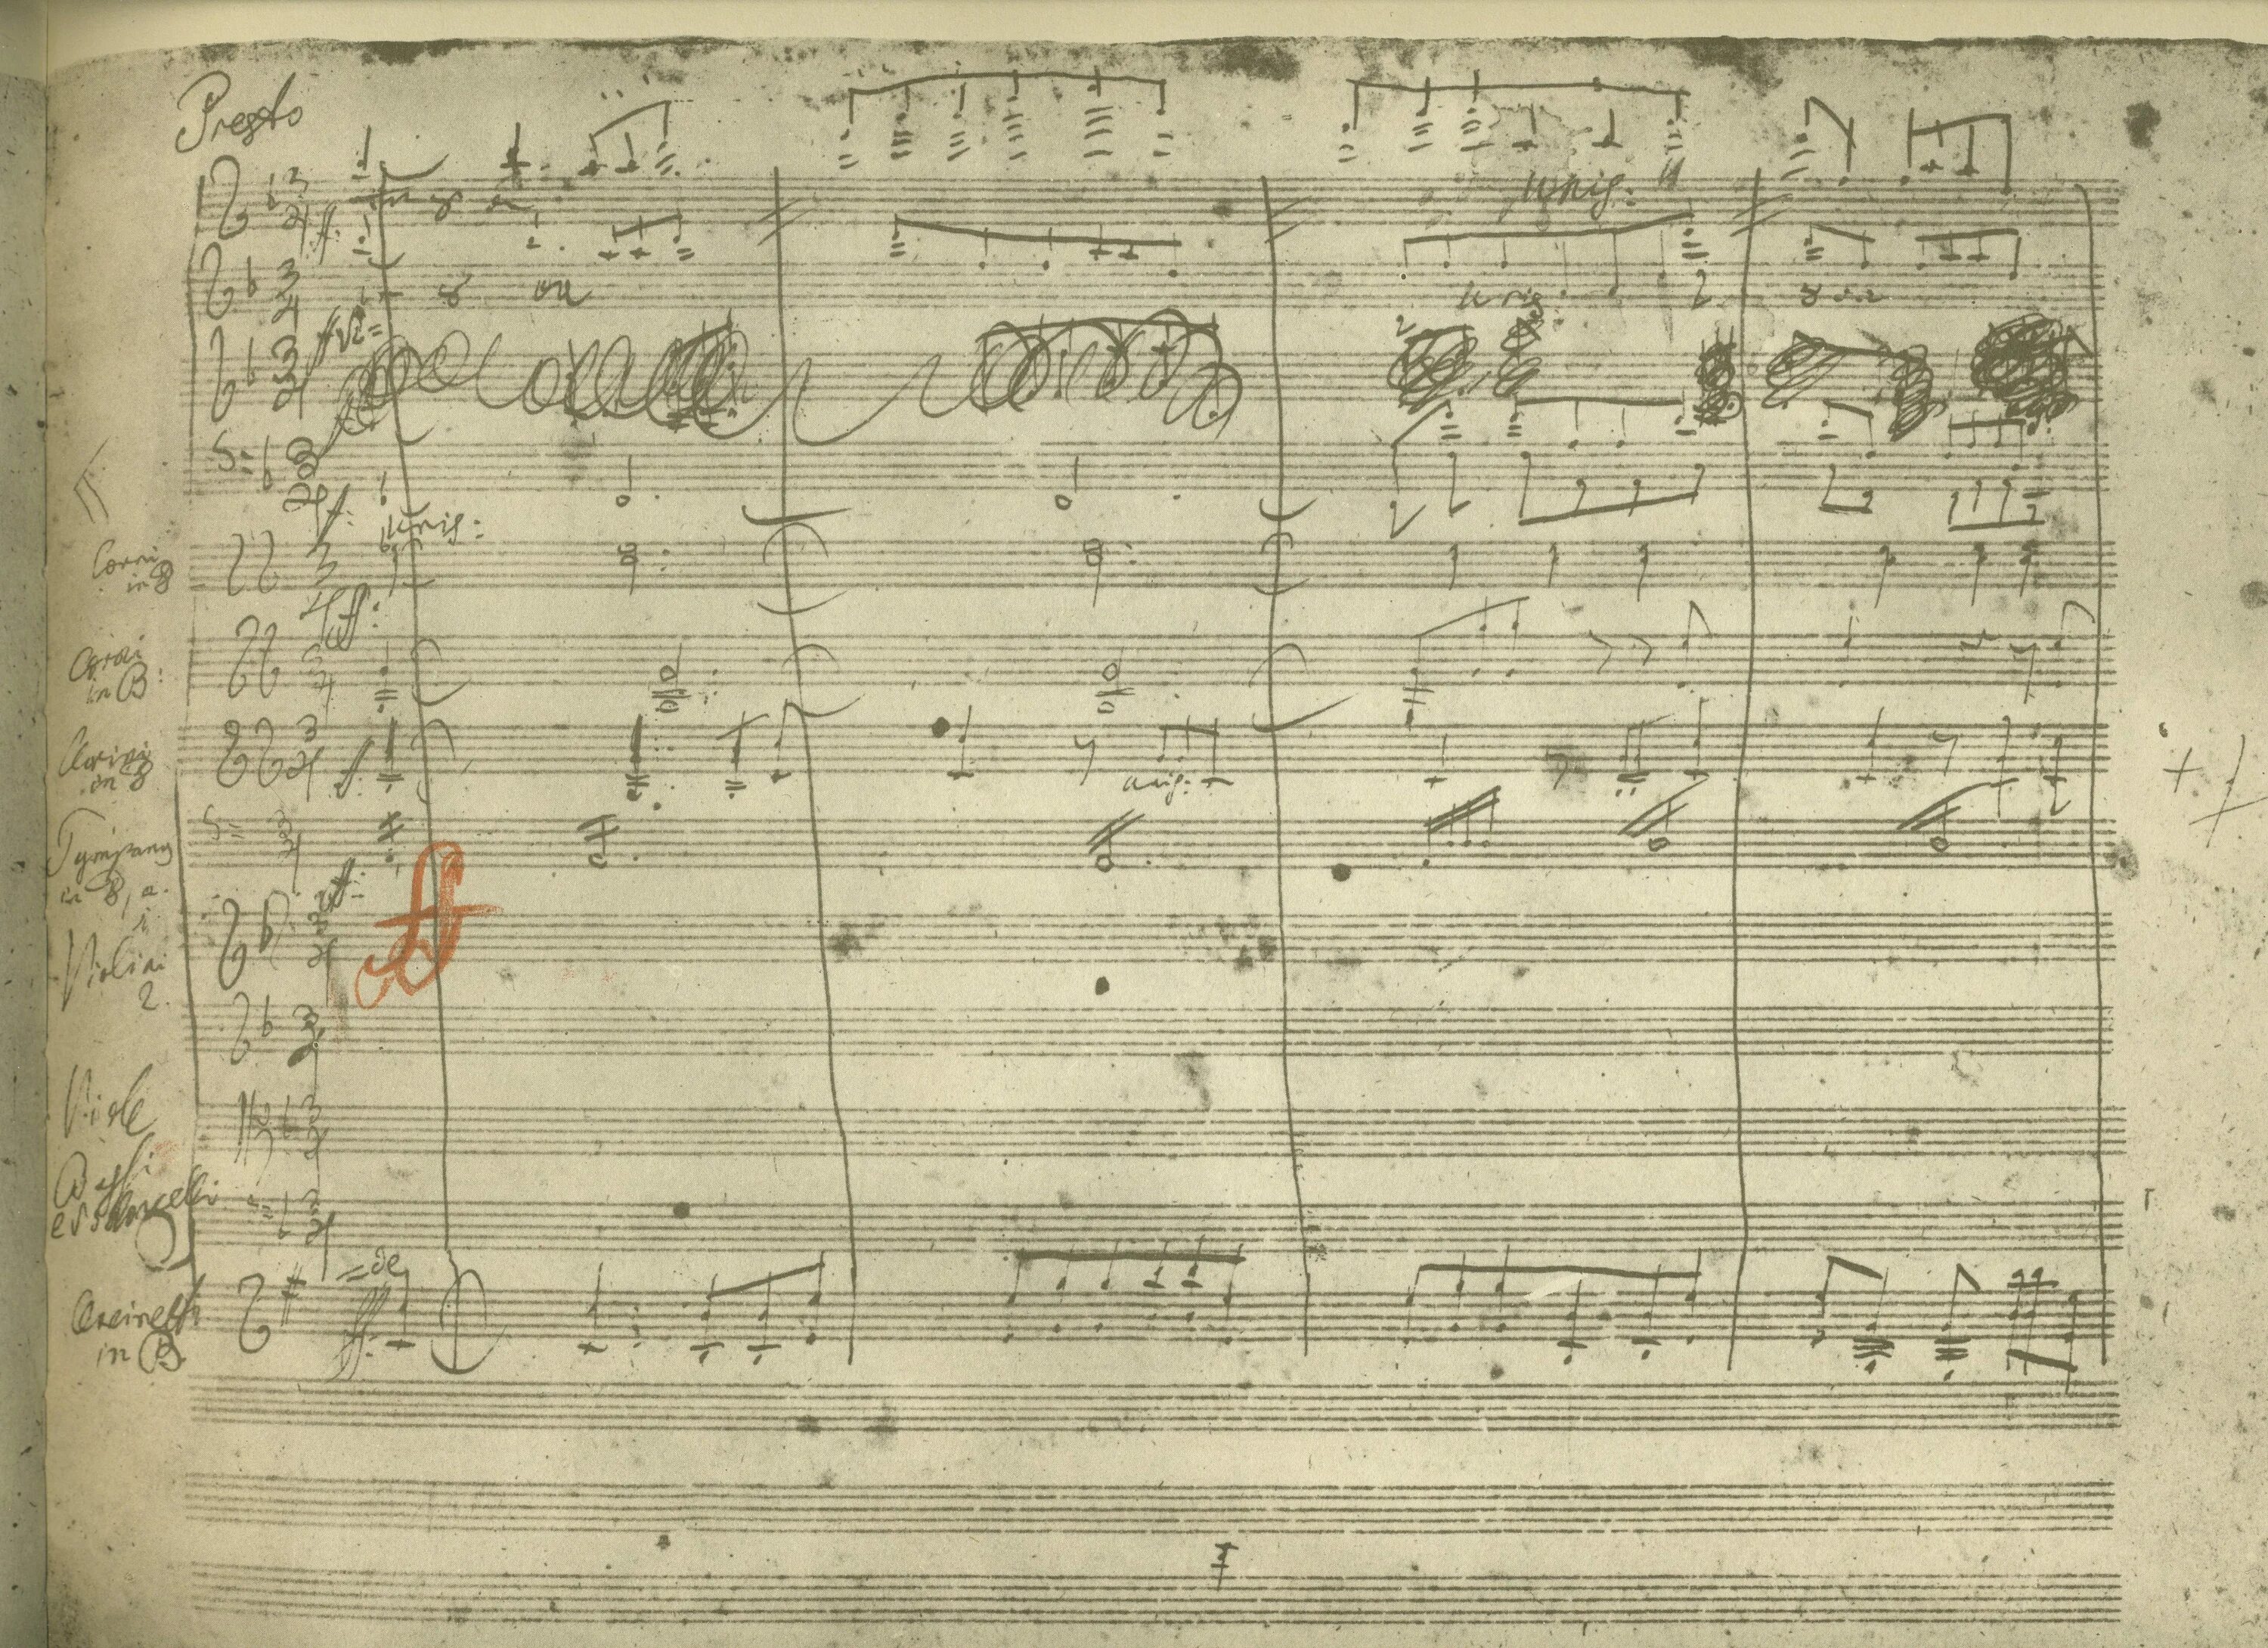 Presto
unis:
ff:
unis:
ff
unis:
Corni
in B
ff:
Corni
in B:
Clarini
in B
f
unis:
Tympany
in B, a.
ff
1
Violini
2.
Viole
Bassi
e Violoncelli
ff:
Clarinetti
in B